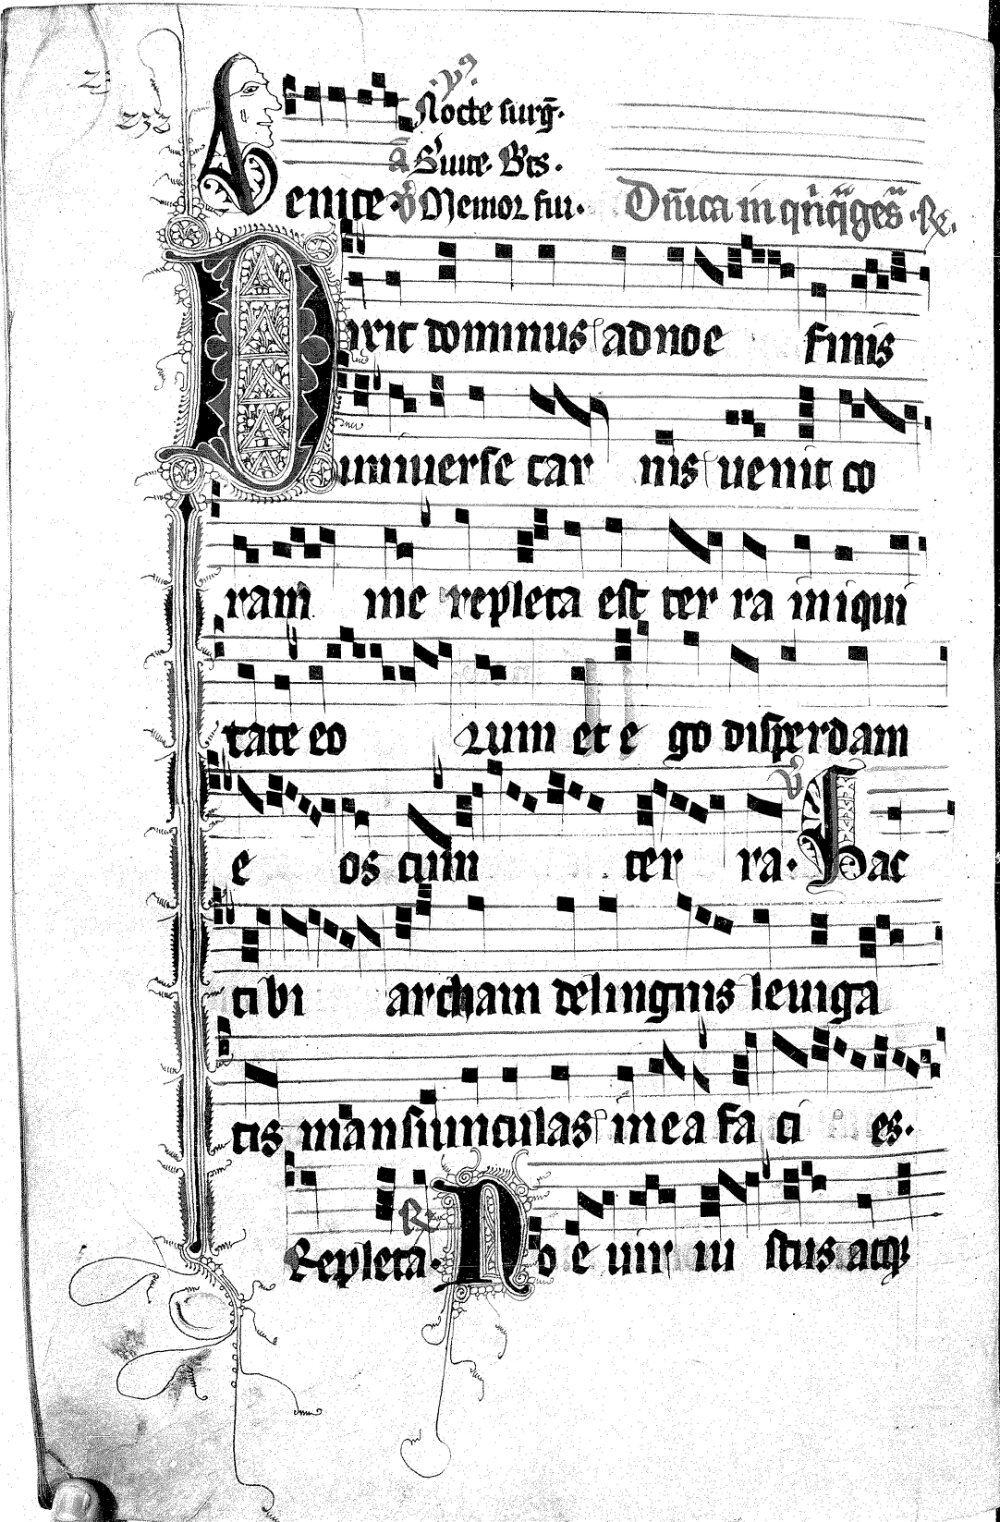 233
Nocte surg̃.
a Seruite. Bt̃s.
Venite. V Memor fui. Dñica in qñq̃ges. R.
Dixit dominus ad noe finis
uniuerse car nis uenit co
ram me repleta est ter ra iniqui
tate eo rum et e go disperdam
e os cum ter ra. V Fac
tibi archam de lingnis leuiga
tis mansiunculas in ea fa ci es.
Repleta. R Noe uir iu stus atqȝ